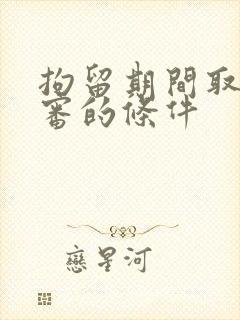 拘留期間取
審的條件
戀星河